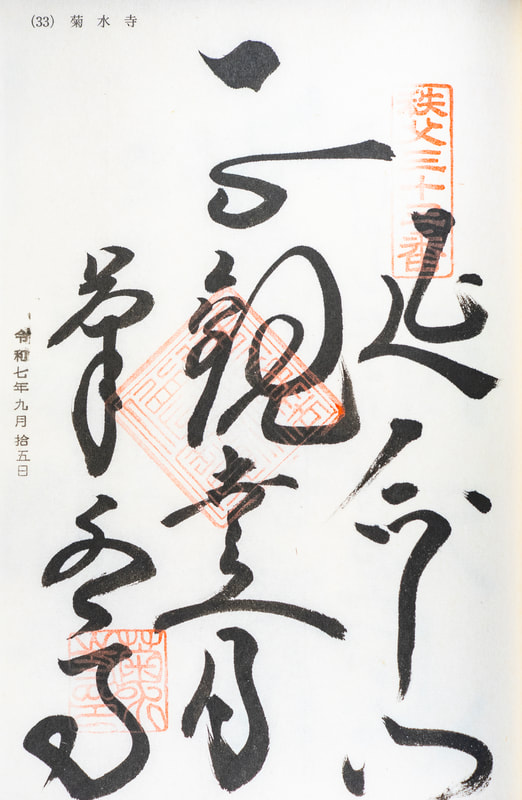 (33) 菊水寺
秩父三十三番
延命山
正観世音
菊水寺
令和七年九月拾五日